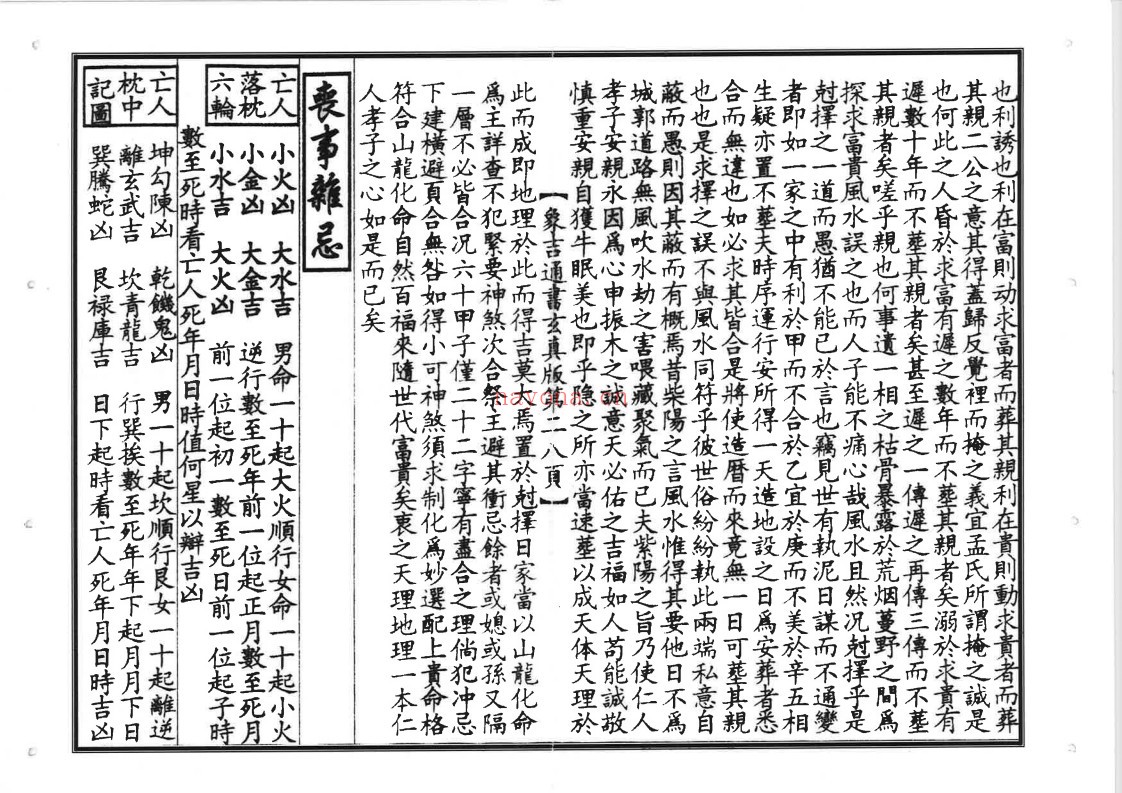 也利誘也利在富則动求富者而葬其親利在貴則動求貴者而葬
其親二公之意其得蓋歸反虆裡而掩之義宜孟氏所謂掩之誠是
也何此之人昏於求富有遲之數年而不葬其親者矣溺於求貴有
遲數十年而不葬其親者矣甚至遲之一傳遲之再傳三傳而不葬
其親者矣嗟乎親也何事遺一相之枯骨暴露於荒烟蔓野之間爲
探求富貴風水誤之也而人子能不痛心哉風水且然况尅擇乎是
尅擇之一道而愚猶不能已於言也竊見世有執泥日謀而不通變
者即如一家之中有利於甲而不合於乙宜於庚而不美於辛五相
生疑亦置不葬夫時序運行安所得一天造地設之日爲安葬者悉
合而無違也如必求其皆合是將使造曆而來竟無一日可葬其親
也也是求擇之誤不與風水同符乎彼世俗紛紛執此兩端私意自
蔽而愚則因其蔽而有概焉昔柴陽之言風水惟得其要他日不爲
城郭道路無風吹水劫之害喂藏聚氣而已夫紫陽之旨乃使仁人
孝子安親永因爲心申振木之誠意天必佑之吉福如人苟能誠敬
慎重安親自獲牛眠美也即乎隐之所亦當速葬以成天体天理於
【象吉通書玄真版第二八頁】
此而成即地理於此而得吉莫大焉置於尅擇日家當以山龍化命
爲主詳查不犯緊要神煞次合祭主避其衝忌餘者或媳或孫又隔
一層不必皆合况六十甲子僅二十二字寧有盡合之理倘犯冲忌
下建橫避頁合無咎如得小可神煞須求制化爲妙選配上貴命格
符合山龍化命自然百福來隨世代富貴矣衷之天理地理一本仁
人孝子之心如是而已矣
喪事雜忌
亡人落枕六輪
小火凶 大水吉 男命一十起大火順行女命一十起小火
小金凶 大金吉 逆行數至死年前一位起正月數至死月
小水吉 大火凶 前一位起初一數至死日前一位起子時
數至死時看亡人死年月日時值何星以辯吉凶
亡人枕中記圖
坤勾陳凶 乾饑鬼凶 男一十起坎順行艮女一十起離逆
離玄武吉 坎青龍吉 行巽挨數至死年年下起月月下日
巽騰蛇凶 艮禄庫吉 日下起時看亡人死年月日時吉凶